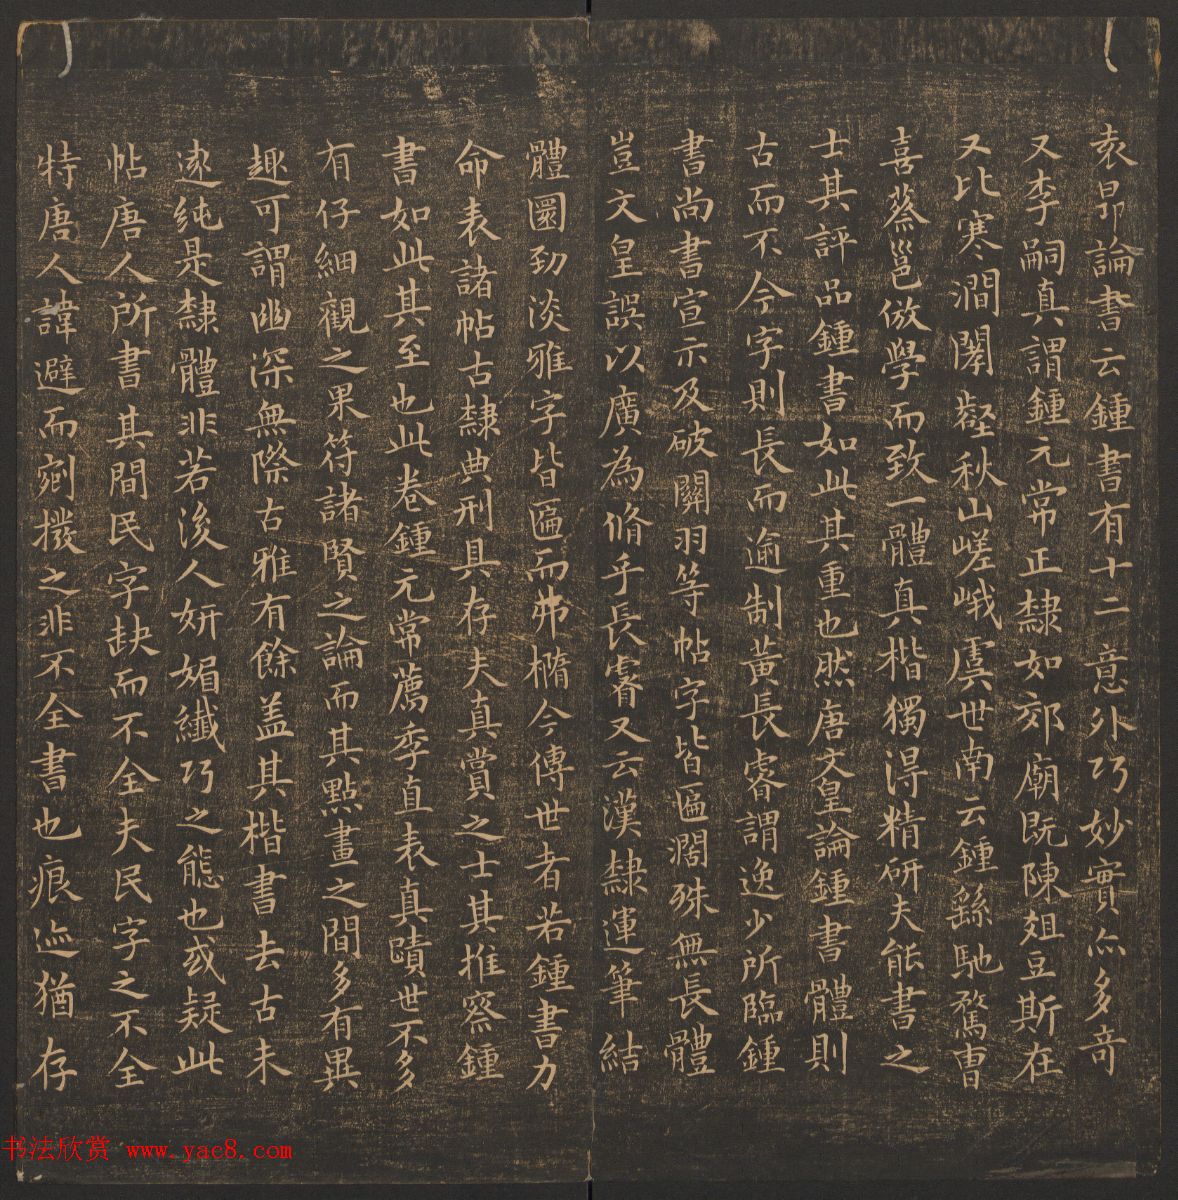 袁昂論書云鍾書有十二意外巧妙實亦多奇
又李嗣真謂鍾元常正隸如郊廟既陳俎豆斯在
又比寒澗閟壑秋山嵯峨虞世南云鍾繇馳騖曹
喜蔡邕倣學而致一體真楷獨得精研夫能書之
士其評品鍾書如此其重也然唐文皇論鍾書體則
古而不今字則長而逾制黃長睿謂逸少所臨鍾
書尚書宣示及破關羽等帖字皆匾濶殊無長體
豈文皇誤以廣為脩乎長睿又云漢隸運筆結
體圜勁淡雅字皆匾而弗橢今傳世者若鍾書力
命表諸帖古隸典刑具存夫真賞之士其推察鍾
書如此其至也此卷鍾元常薦季直表真蹟世不多
有仔細觀之果符諸賢之論而其點畫之間多有異
趣可謂幽深無際古雅有餘盖其楷書去古未
遠純是隸體非若後人妍媚纖巧之態也或疑此
帖唐人所書其間民字缺而不全夫民字之不全
特唐人諱避而剜撥之非不全書也痕迹猶存
书法欣赏 www.yac8.com